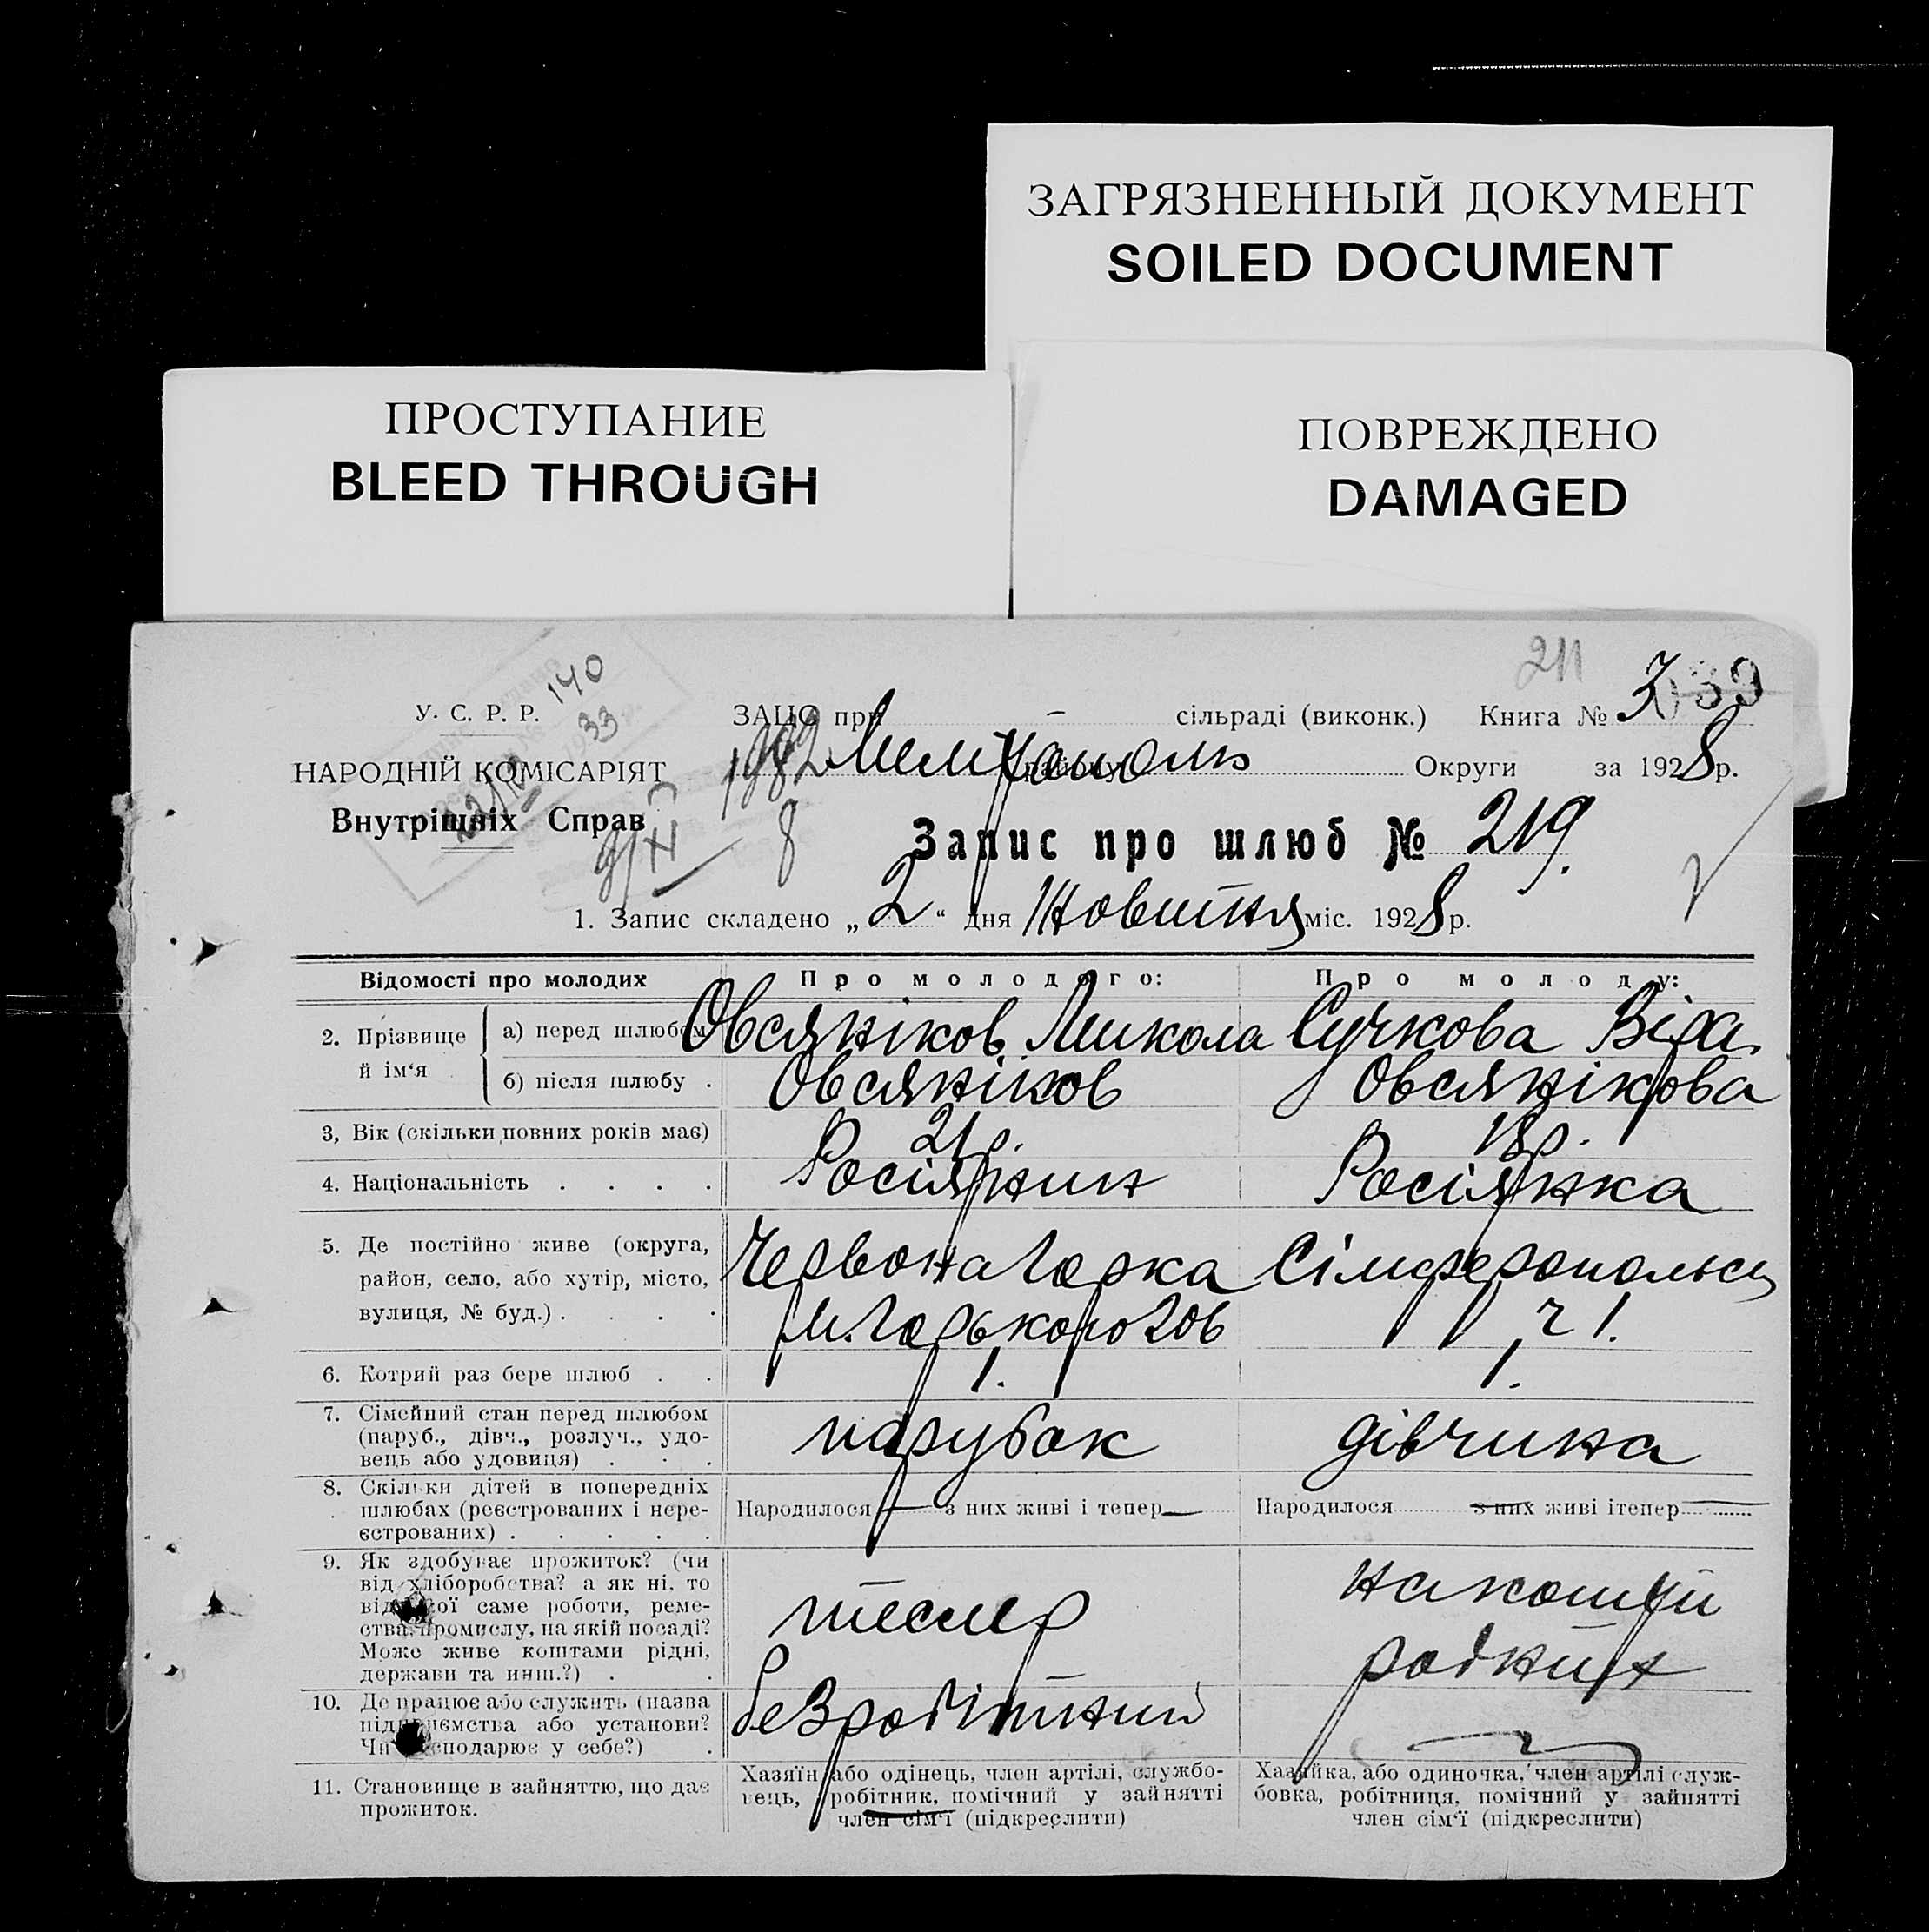 ЗАГРЯЗНЕННЫЙ ДОКУМЕНТ
SOILED DOCUMENT
ПРОСТУПАНИЕ
BLEED THROUGH
ПОВРЕЖДЕНО
DAMAGED
211
140
33
У. С. Р. Р.
НАРОДНІЙ КОМІСАРІЯТ
Внутрішніх Справ
ЗАЦС при – сільраді (виконк.) Книга № 3
Мелітополь району Округи за 1928 р.
Запис про шлюб № 219.
1. Запис складено „2“ дня Жовтня міс. 1928 р.
Відомості про молодих
Про молодого:
Про молоду:
2. Прізвище й ім‘я
а) перед шлюбом
Овсяніков Микола
Сучкова Віра
б) після шлюбу .
Овсяніков
Овсянікова
3, Вік (скільки повних років має)
21 р.
18 р.
4. Національність . . . .
Росіянин
Росіянка
5. Де постійно живе (округа,
район, село, або хутір, місто,
вулиця, № буд.) . . . .
Червона Горка
М. Горького 206
Сімферопольсь
ч 1.
6. Котрий раз бере шлюб . .
1.
1.
7. Сімейний стан перед шлюбом
(паруб., дівч., розлуч., удо-
вець або удовиця) . . .
парубок
дівчина
8. Скільки дітей в попередніх
шлюбах (реєстрованих і нере-
єстрованих) . . . . .
Народилося — з них живі і тепер —
Народилося з них живі ітепер —
9. Як здобуває прожиток? (чи
від хліборобства? а як ні, то
від якої саме роботи, реме-
ства, промислу, на якій посаді?
Може живе коштами рідні,
держави та инш.?) . .
тесляр
на кошти
родних
10. Де працює або служить (назва
підприємства або установи?
Чи господарює у себе?) .
безробітний
11. Становище в зайняттю, що дає
прожиток.
Хазяїн або одінець, член артілі, службо-
вець, робітник, помічний у зайнятті
член сім‘ї (підкреслити)
Хазяйка, або одиночка, член артілі служ-
бовка, робітниця, помічний у зайнятті
член сім‘ї (підкреслити)